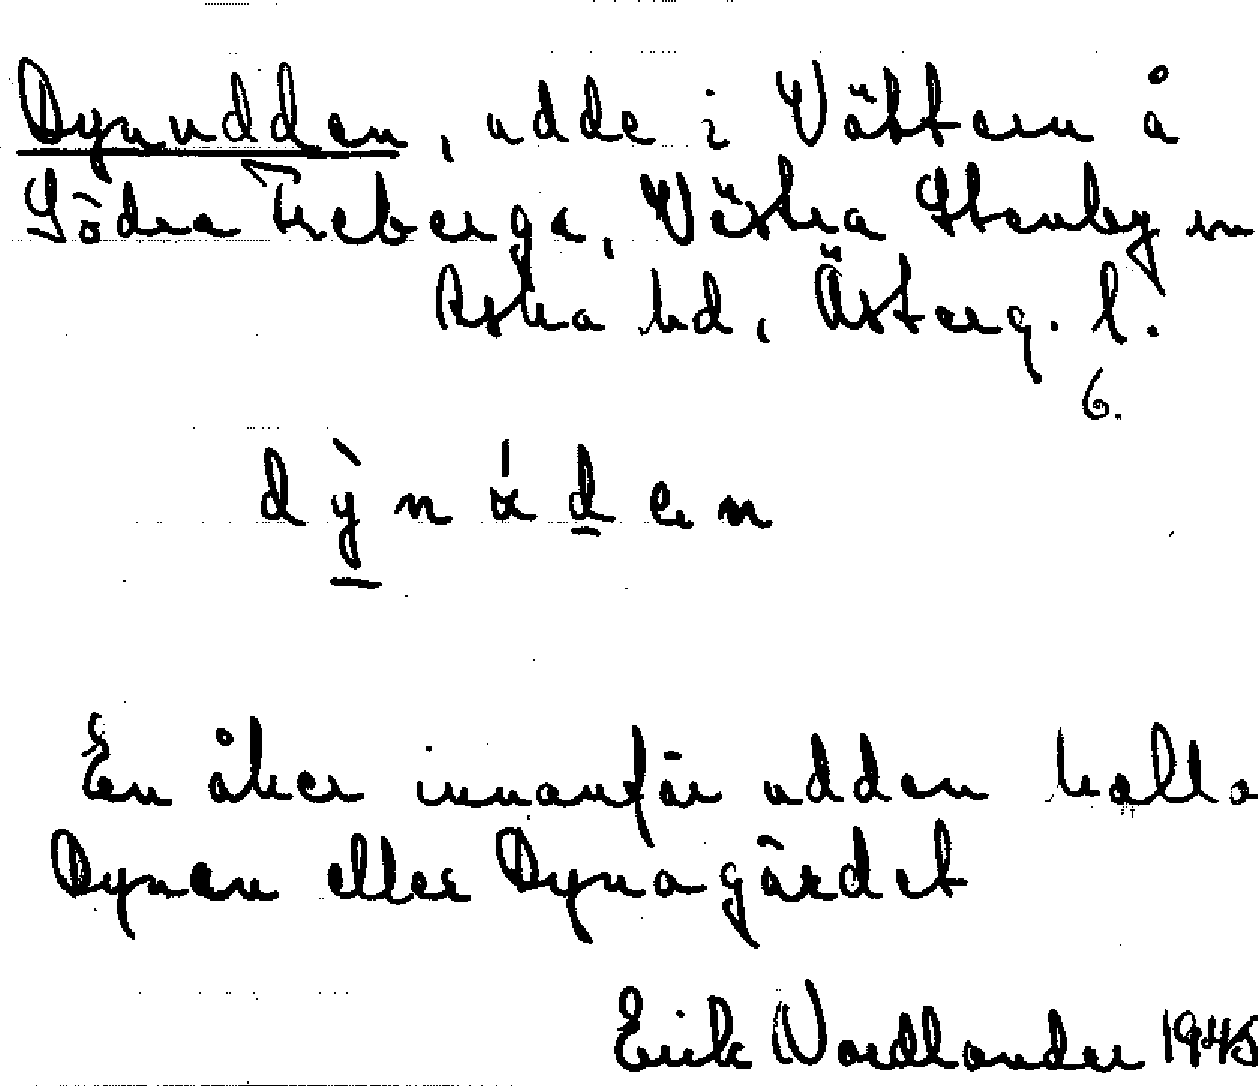 Dynudden, udde i Vättern å
Södra Freberga, Västra Stenby sn
Aska hd, Österg. l.
6.
dỳnɑ́den
En åker innanför udden kalla
Dynen eller Dynagärdet
Erik Nordlander 1945